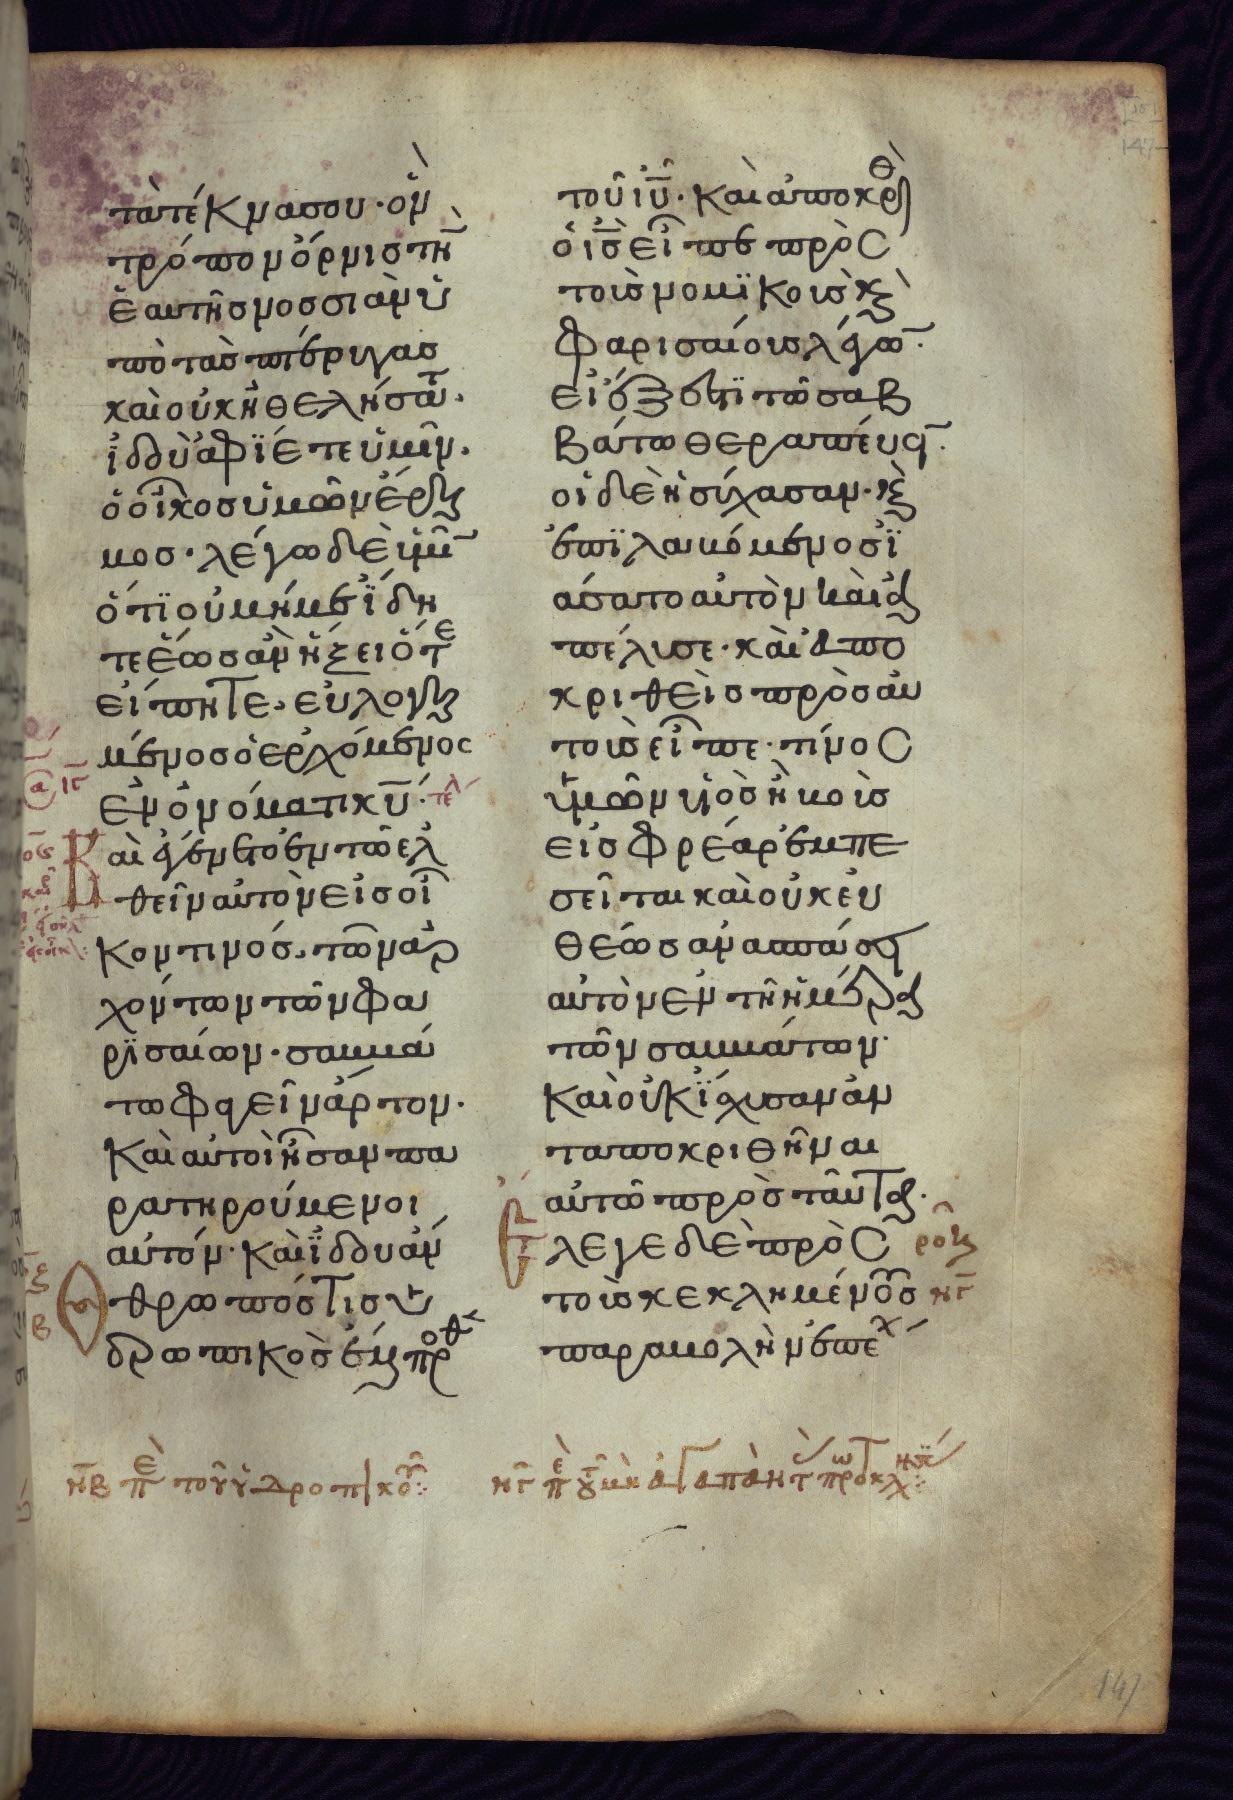 τὰ τέκνα σου· ὃν
τρόπον ὄρνις τὴν
ἑαυτῆς νοσσιὰν ὑ
πὸ τὰς πτέρυγας
καὶ οὐκ ἠθελήσατε.
ἰδοὺ ἀφίετε ὑμῖν.
ὁ οἶκος ὑμῶν ἔρη
μος· λέγω δὲ ὑμῖν
ὅτι οὐ μή με ἴδη
τε ἕως ἂν ἥξει ὅτε
εἴπητε. εὐλογη
μένος ὁ ἐρχόμενος
ἐν ὀνόματι κ̅υ̅· τέλ
Καὶ ἐγένετο ἐν τῶ ἐλ
θεῖν αὐτὸν εἰς οἶ
κον τινός. τῶν ἀρ
χόντων τῶν φα
ρισαίων· σαββά
τω φαγεῖν ἄρτον.
καὶ αὐτοὶ ἦσαν πα
ρατηρούμενοι
αὐτόν· καὶ ἰδοὺ ἄν
θρωπός τις ὑ
δρωπικὸς ἔμπροσθ
τοῦ ι̅υ̅· καὶ ἀποκριθ
ὁ ι̅ς̅ εἶπε πρὸς
τοὺς νομικοὺς κ
φαρισαίους λέγων·
εἰ ἔξεστι τῶ σαβ
βάτω θεραπεύειν·
οἱ δὲ ἡσύχασαν· κ
ἐπιλαβόμενος ἰ
άσατο αὐτὸν καὶ ἀ
πέλυσε· καὶ ἀπο
κριθεὶς πρὸς αὐ
τοὺς εἶπε· τίνος
ὑμῶν υἱὸς ἢ βοῦς
εἰς φρέαρ ἐμπε
σεῖται καὶ οὐκ εὐ
θέως ἀνασπάσει
αὐτὸν ἐν τῆ ἡμέρα
τῶν σαββάτων·
καὶ οὐκ ἴσχυσαν ἀν
ταποκριθῆναι
αὐτῶ πρὸς ταῦτα.
Ἔλεγε δὲ πρὸς
τοὺς κεκλημένους
παραβολὴν ἐπέχ
ν̅β̅ π̅ε̅ τοῦ ὑδροπικοῦ:
ν̅γ̅ π̅ε̅ τοῦ μὴ ἀγαπᾶν τ πρωτοκλησί: